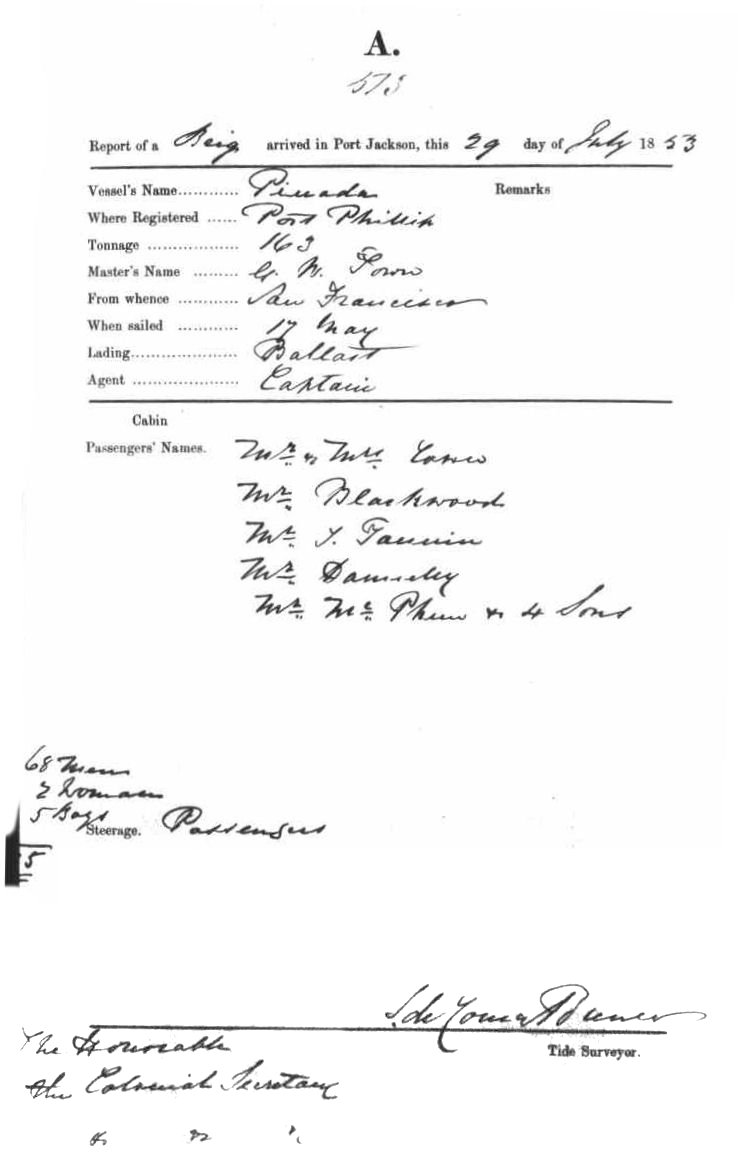 A.
573
Report of a Brig arrived in Port Jackson, this 29 day of July 1853
Vessel's Name............ Remarks
Where Registered ...... Port Phillip
Tonnage .................. 163
Master's Name ......... G. W. Town
From whence ............ San Francisco
When sailed ............ 17 May
Lading..................... Ballast
Agent ..................... Captain
Cabin
Passengers' Names. Mr & Mrs
Mr Blackwood
Mr
Mr
Mr Mc & 4 Sons
68 Men
2 Woman
5 Boys
Steerage. Passengers
5
Tide Surveyor.
The Honorable
the Colonial Secretary